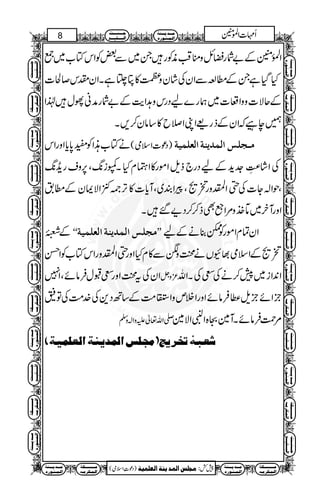 اُمہاتُ المؤمنین
8
المؤمنین کے بے شمار فضائل ومناقب مذکور ہیں جن میں سے بعض کو اس کتاب میں جمع
کیا گیا ہے جن کے مطالعہ سے ان کی شان وعظمت کا پتا چلتا ہے۔ ان مقدس صالحات
کے حالات و واقعات میں ہمارے لیے درسِ ہدایت کے بے شمار مدنی پھول ہیں لہٰذا
ہمیں چاہیے کہ ان کے ذریعے اپنی اصلاح کا سامان کریں۔
مجلس المدینۃ العلمیۃ (دعوتِ اسلامی) نے کتاب ہٰذا کو مفید پایا اور اس
کی اشاعتِ جدید کے لیے درج ذیل امور کا اہتمام کیا۔ کمپوزنگ، پروف ریڈنگ
، حوالہ جات کی حتی المقدور تخریج، پیرا بندی، آیات کا ترجمہ کنزالایمان کے مطابق
اور آخر میں مآخذ ومراجع بھی ذکر کر دیے گئے ہیں۔
ان تمام امور کو ممکن بنانے کے لیے ”مجلس المدینۃ العلمیۃ“ کے شعبۂ
تخریج کے اسلامی بھائیوں نے محنت ولگن سے کام کیا اور حتی المقدور اس کتاب کو احسن
انداز میں پیش کرنے کی سعی کی۔ اللہ عزوجل ان کی یہ محنت اور سعی قبول فرمائے، انہیں
جزائے جزیل عطا فرمائے اور اخلاص واستقامت کے ساتھ دین کی خدمت کی توفیق
مرحمت فرمائے۔ آمین بجاہ النبی الامین صلی اللہ تعالیٰ علیہ والہ وسلم
شعبۂ تخریج (مجلس المدینۃ العلمیۃ)
پیش کش: مجلس المدینۃ العلمیۃ (دعوتِ اسلامی)